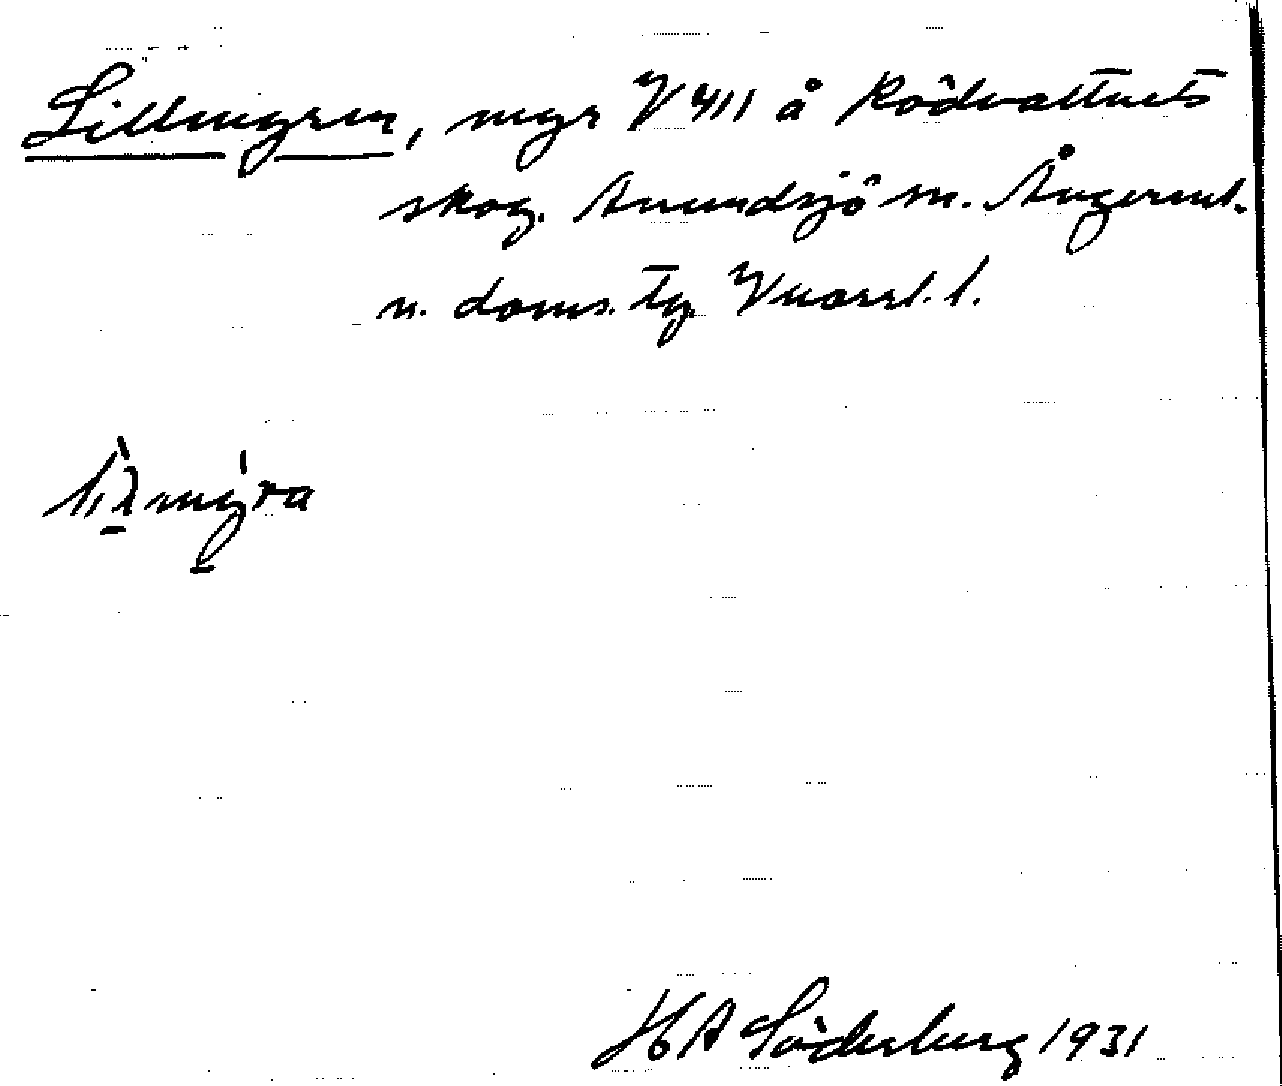 Lillmyren, myr V 411 å Rödvattnets
skog. Anundsjö sn. Ångerml.
n. doms. tg. Vnorrl. l.
HA Söderberg 1931